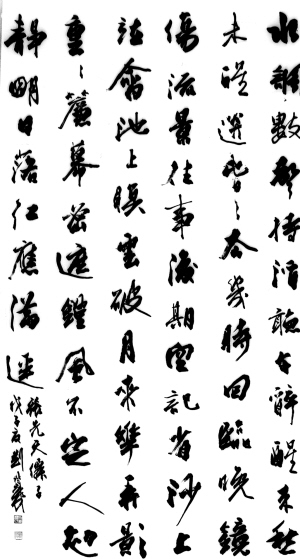 水調數聲持酒聽午醉醒来愁
未醒送春々去幾時回臨晚鏡
傷流景往事後期空記省沙上
並禽池上暝雲破月来華弄影
重々簾幕密遮燈風不定人初
靜明日落紅應滿逕
張先天僊子
戊子夏劉